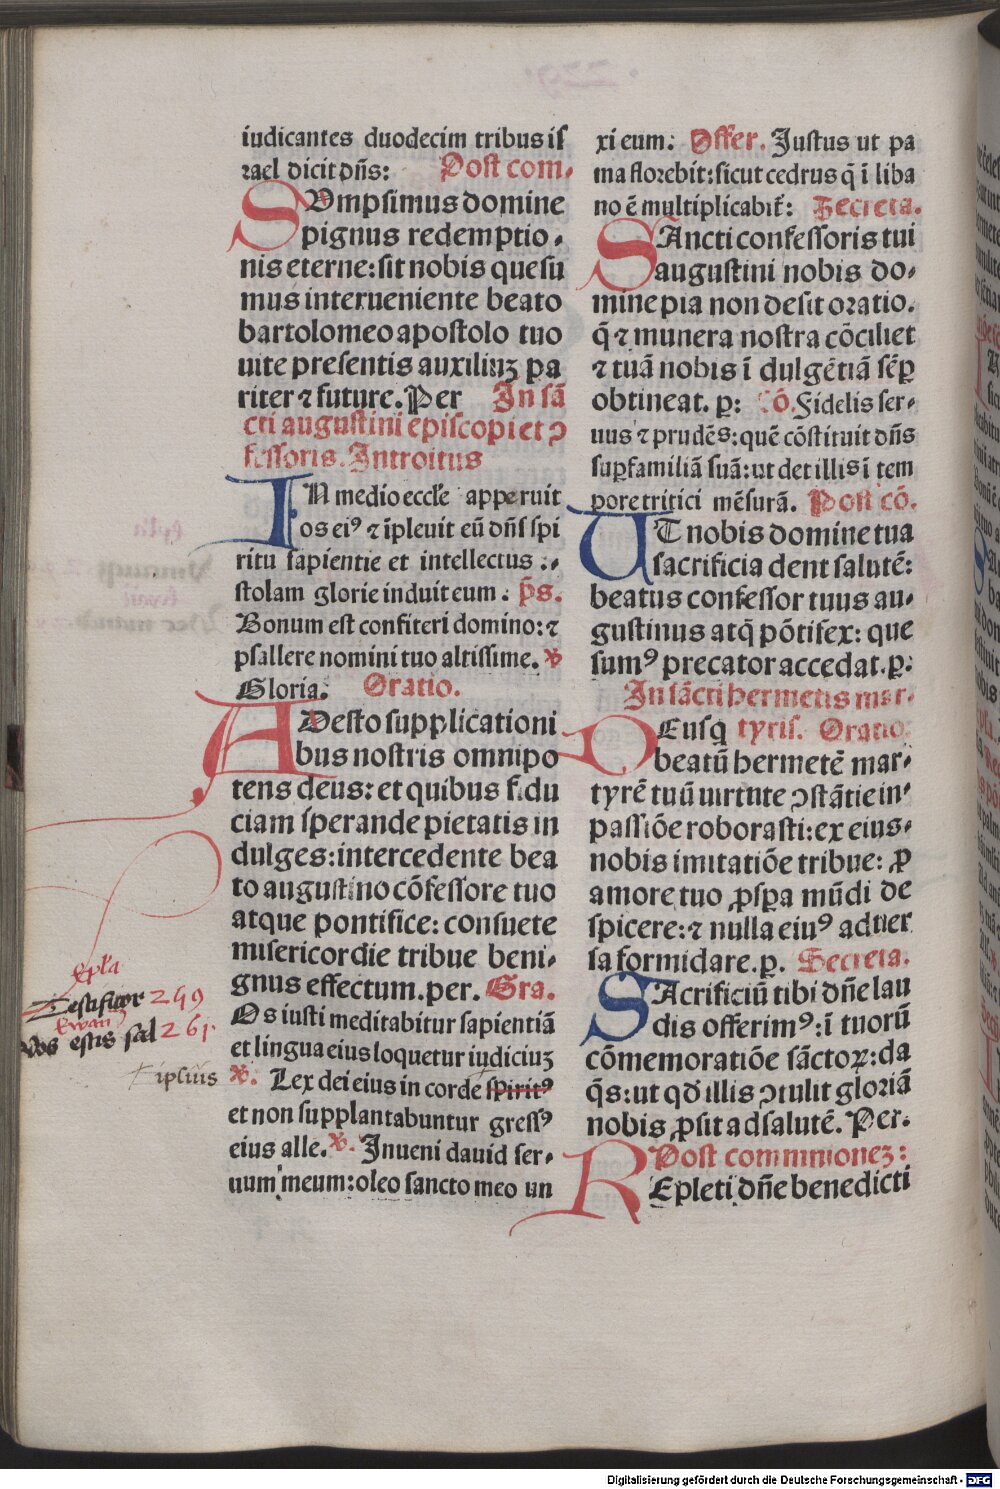 iudicantes duodecim tribus iſ
rael dicit dñs: Poſt com.
SVmpſimus domine
pignus redemptio.
nis eterne: ſit nobis queſu
mus interueniente beato
bartolomeo apoſtolo tuo
uite preſentis auxiliuꝫ pa
riter ⁊ future. Per In ſã
cti auguſtini epiſcopi et ↄ
feſſoris. Introitus
IN medio eccľe apperuit
os eiꝰ ⁊ ĩpleuit eũ dñſ ſpi
ritu ſapientie et intellectus :.
ſtolam glorie induit eum. p̃s.
Bonum eſt confiteri domino: ⁊
pſallere nomini tuo altiſſime. ℣
Gloria. Oratio.
ADeſto ſupplicationi
bus noſtris omnipo
tens deus: et quibus fidu
ciam ſperande pietatis in
dulges: intercedente bea
to auguſtino cõfeſſore tuo
atque pontifice: conſuete
miſericordie tribue beni.
gnus effectum. per. Gra.
Os iuſti meditabitur ſapientiã
et lingua eius loquetur iudiciuꝫ
℣. Lex dei eius in corde ſpiritꝰ
et non ſupplantabuntur greſſꝰ
eius alle. ℣. Inueni dauid ſer.
uum meum: oleo ſancto meo un
Epľa
Teſtificor 249
Ewanꝫ
Vos eſtis ſal 261
ipſius
xi eum: Offer. Juſtus ut pa
ma florebit: ſicut cedrus q̃ ĩ liba
no ẽ multiplicabit̃: Secreta.
SAncti confeſſoris tui
auguſtini nobis do.
mine pia non deſit oratio.
q̃ ⁊ munera noſtra cõciliet
⁊ tuã nobis ĩ dulgẽtiã ſẽꝑ
obtineat. ꝑ: Cõ. Fidelis ſer.
uus ⁊ prudẽs: quẽ cõſtituit dñs
ſuꝑ familiã ſuã: ut det illis ĩ tem
pore tritici mẽſurã. Poſt cõ.
UT nobis domine tua
ſacrificia dent ſalutẽ:
beatus confeſſor tuus au.
guſtinus atq̃ põtifex: que
ſumꝰ precator accedat. ꝑ:
In ſãcti hermetis mar.
DEus q tyriſ. Oratio.
beatũ hermetẽ mar.
tyrẽ tuũ uirtute ↄſtãtie in.
paſſiõe roboraſti: ex eius.
nobis imitatiõe tribue: ꝓ
amore tuo ꝓſꝑa mũdi de
ſpicere: ⁊ nulla eiuꝰ aduer
ſa formidare. ꝑ. Secreta.
SAcrificiũ tibi dñe lau
dis offerimꝰ: ĩ tuorũ
cõmemoratiõe ſãctoꝝ: da
q̃s: ut qď illis ↄtulit gloriã
nobis ꝓſit ad ſalutẽ. Per.
Poſt communioneꝫ:
REpleti dñe benedicti
Digitalisierung gefördert durch die Deutsche Forschungsgemeinschaft - DFG